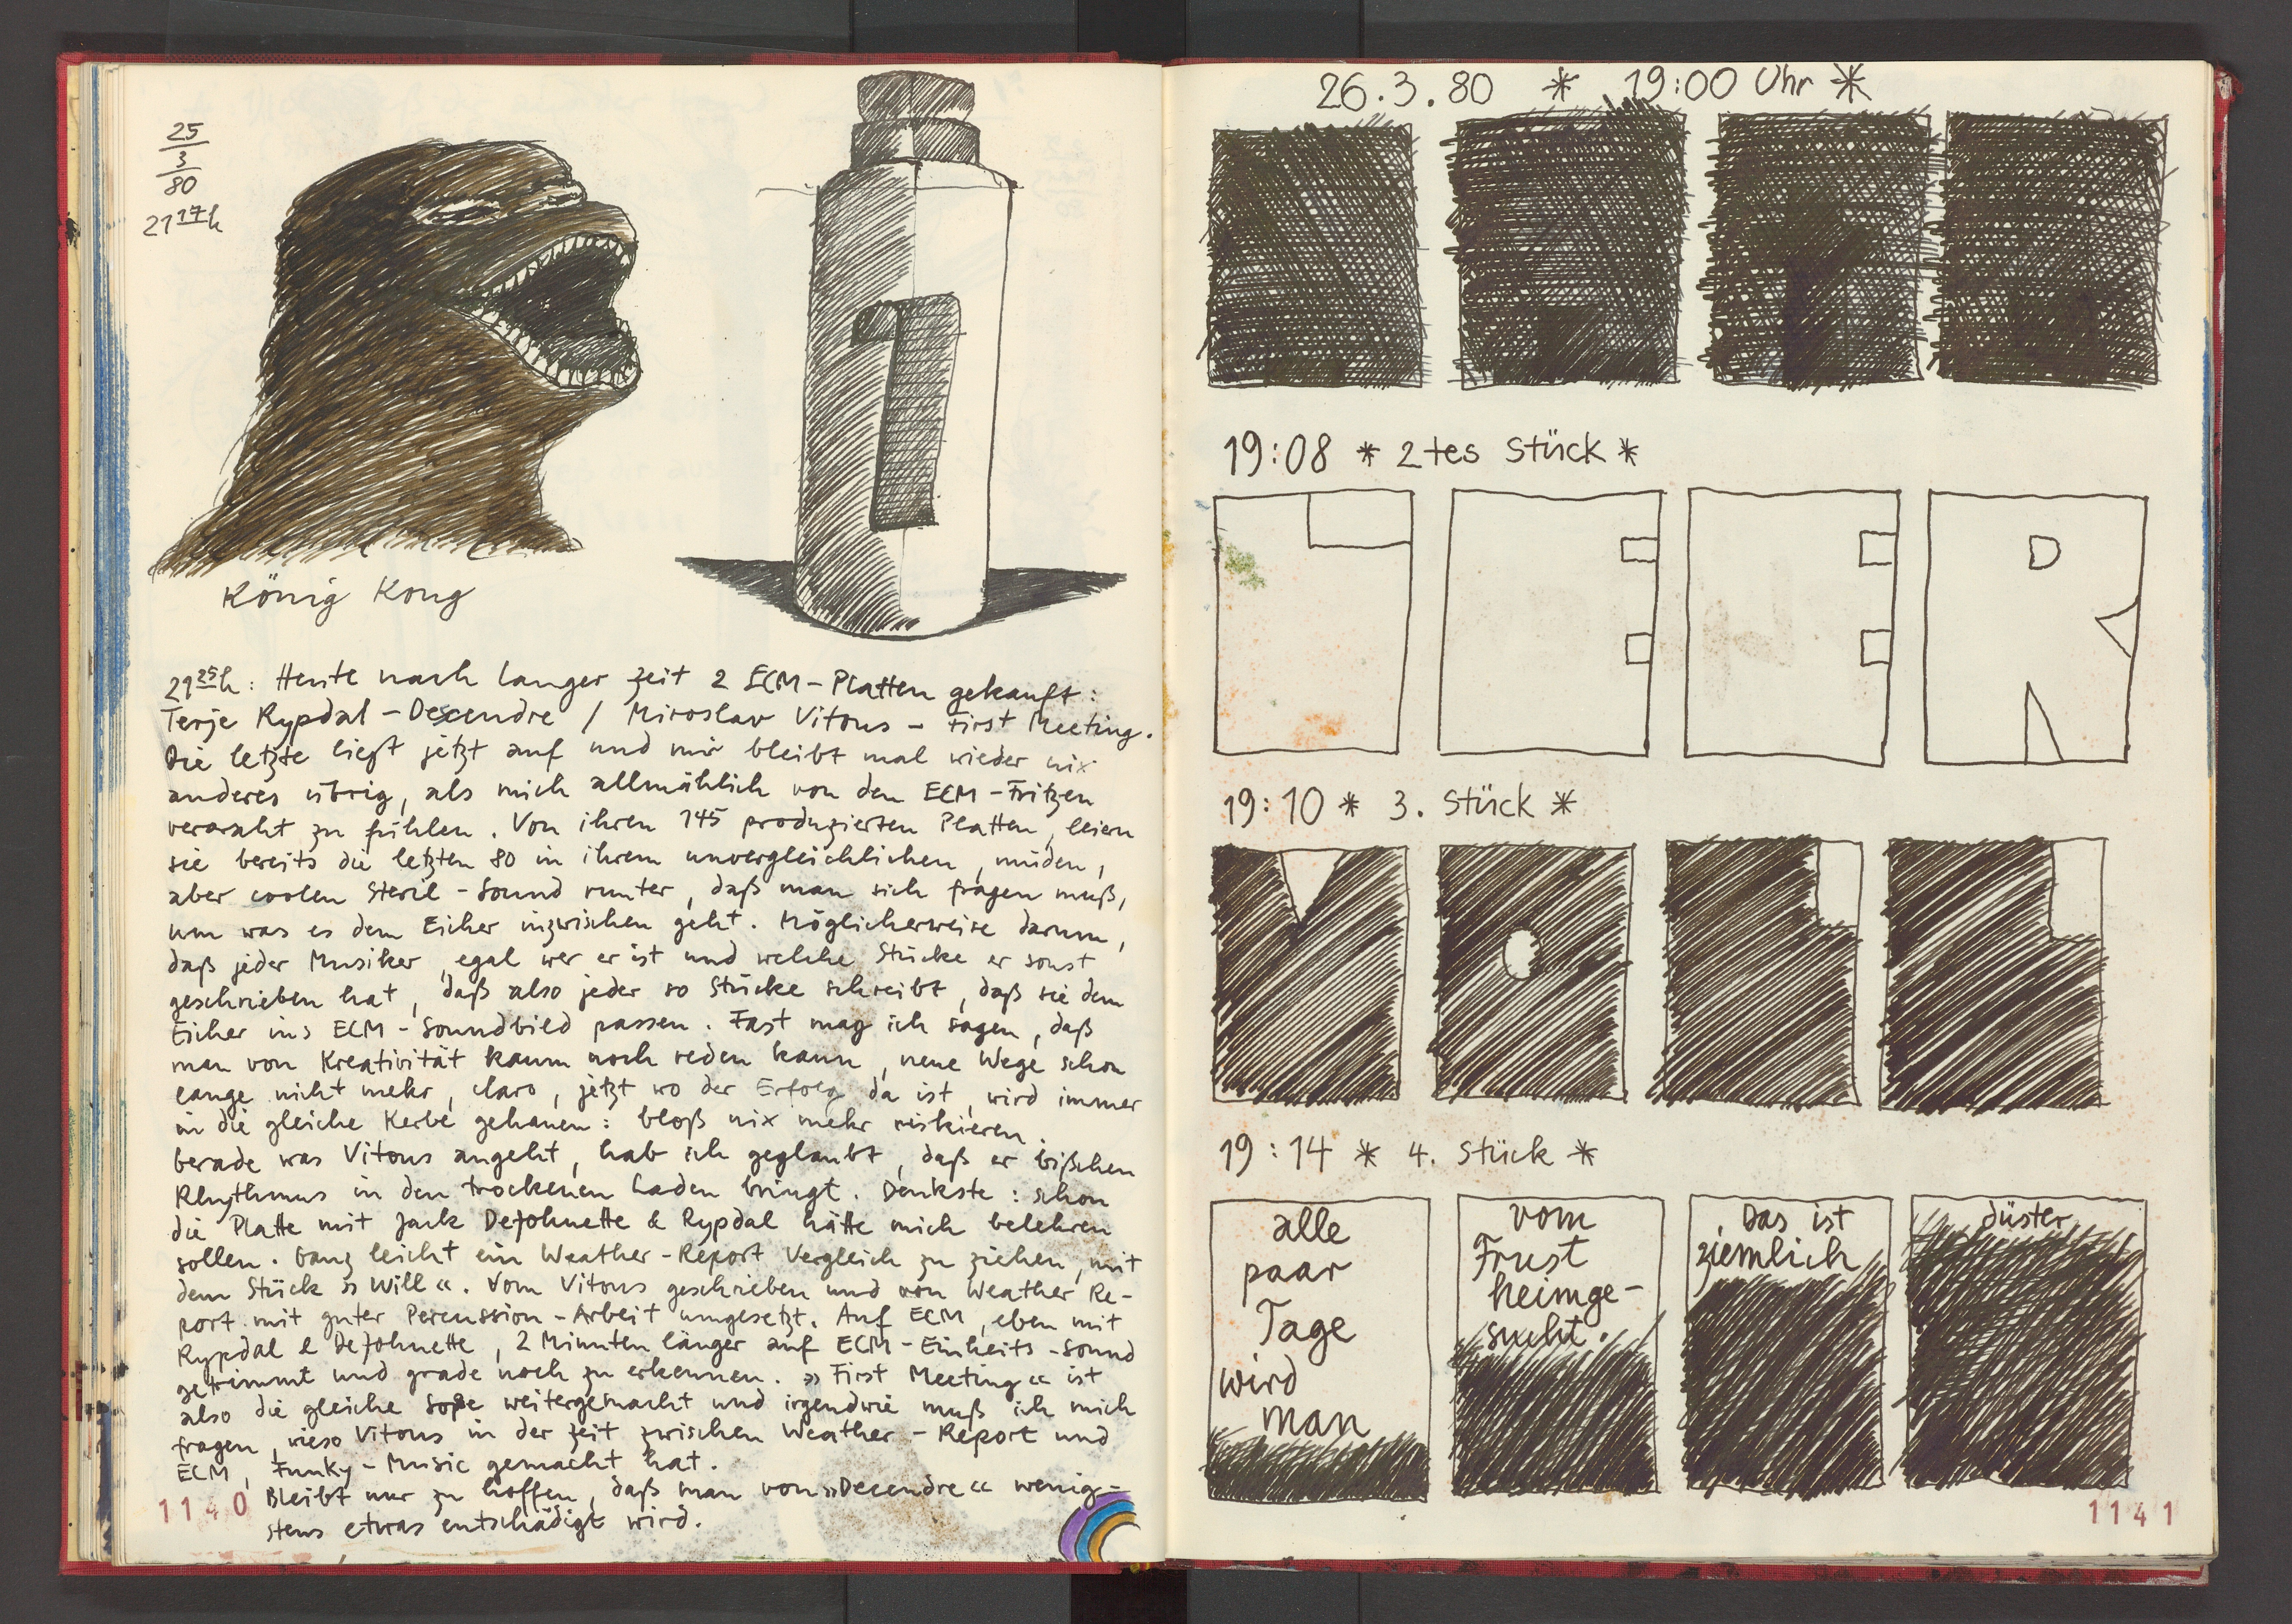 25
3
80
21 17 h
König Kong
21 25 h: Heute nach langer Zeit 2 ECM-Platten gekauft:
Terje Rypdal - Descendre / Miroslav Vitous - First Meeting.
Die letzte liegt jetzt auf und mir bleibt mal wieder nix
anderes übrig, als mich allmählich von den ECM-Fritzen
verarscht zu fühlen. Von ihren 145 produzierten Platten, leiern
sie bereits die letzten 80 in ihrem unvergleichlichen, müden,
aber coolen Steril-Sound runter, daß man sich fragen muß,
um was es dem Eicher inzwischen geht. Möglicherweise darum,
daß jeder Musiker, egal wer er ist und welche Stücke er sonst
geschrieben hat, daß also jeder so Stücke schreibt, daß sie dem
Eicher ins ECM-Soundbild passen. Fast mag ich sagen, daß
man von Kreativität kaum noch reden kann, neue Wege schon
lange nicht mehr, claro, jetzt wo der Erfolg da ist, wird immer
in die gleiche Kerbe gehauen: bloß nix mehr riskieren.
Gerade was Vitous angeht, hab ich geglaubt, daß er bißchen
Rhythmus in den trockenen Laden bringt. Denkste: schon
die Platte mit Jack DeJohnette & Rypdal hätte mich belehren
sollen. Ganz leicht ein Weather-Report Vergleich zu ziehen, mit
dem Stück »Will«. Vom Vitous geschrieben und von Weather Re-
port mit guter Percussion-Arbeit umgesetzt. Auf ECM, eben mit
Rypdal & DeJohnette, 2 Minuten länger auf ECM-Einheits-Sound
getrimmt und grade noch zu erkennen. »First Meeting« ist
also die gleiche Soße weitergemacht und irgendwie muß ich mich
fragen, wieso Vitous in der Zeit zwischen Weather-Report und
ECM, Funky-Music gemacht hat.
Bleibt nur zu hoffen, daß man von »Decendre« wenig-
stens etwas entschädigt wird.
1140
1
26.3.80 * 19:00 Uhr *
19:08 * 2tes Stück *
19:10 * 3. Stück *
19:14 * 4. Stück *
alle
paar
Tage
wird
man
vom
Frust
heimge-
sucht.
Das ist
ziemlich
düster
1141